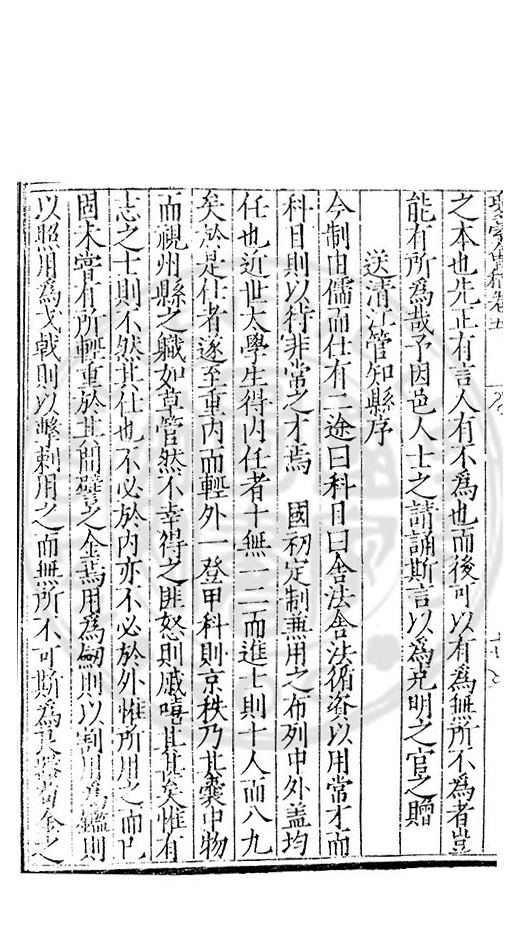 之本也先正有言人有不為也而後可以有為無所不為者豈
能有所為哉予因邑人士之請誦斯言以為克明之官之贈
送清江管知縣序
今制由儒而仕有二途曰科目曰舍法舍法循資以用常才而
科目則以待非常之才焉　國初定制兼用之布列中外盖均
任也近世太學生得内任者十無一二而進士則十人而八九
矣於是仕者遂至重内而輕外一登甲科則京秩乃其囊中物
而視州縣之職如草管然不幸得之匪怒則戚嘻其甚矣惟有
志之士則不然其仕也不必於内亦不必於外惟所用之而已
固未嘗有所輕重於其間譬之金焉用為劒則以割用為鑑則
以照用為戈戟則以擊刺用之而無所不可斯為良器苟金之